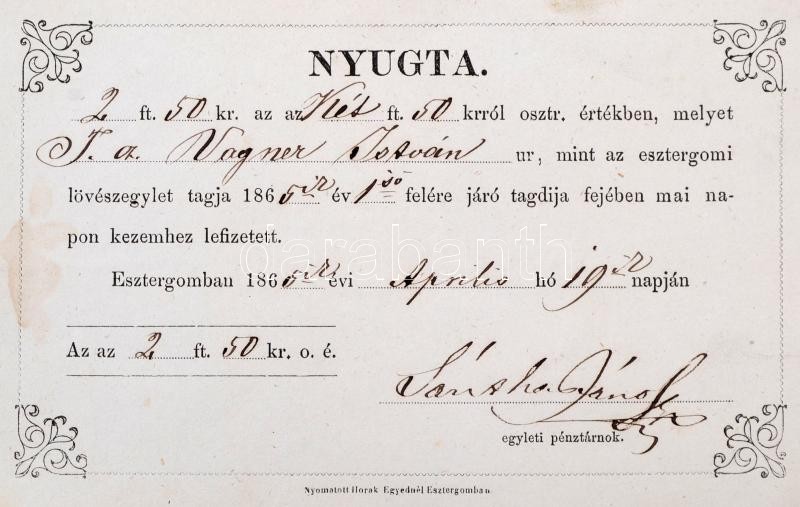 NYUGTA.
2 ft. 50 kr. az az Két ft. 50 krról osztr. értékben, melyet
T. a. Vagner István ur, mint az esztergomi
lövészegylet tagja 1865ik év 1ső felére járó tagdija fejében mai na-
pon kezemhez lefizetett.
darabanth
Esztergomban 1865ik évi Aprilis hó 19ik napján
Az az 2 ft. 50 kr. o. é.
János
egyleti pénztárnok.
Nyomatott Horak Egyednél Esztergomban